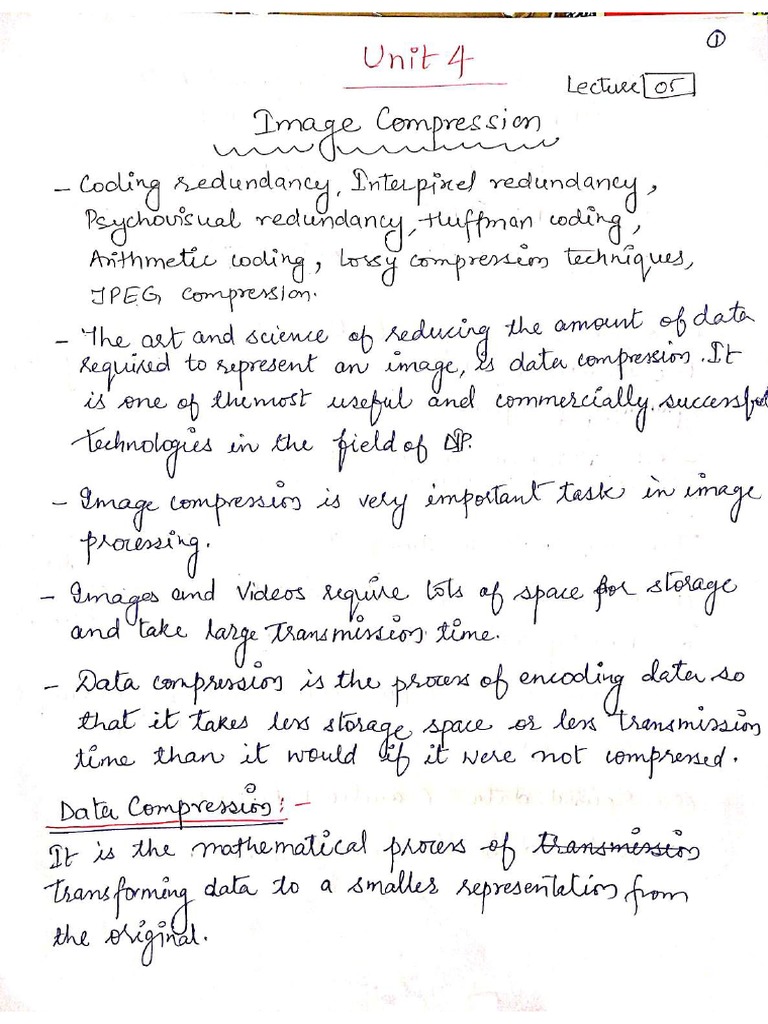 ①
Unit 4
Lecture 05
Image Compression
- Coding redundancy, Interpixel redundancy,
Psychovisual redundancy, Huffman coding,
Arithmetic coding, Lossy compression techniques,
JPEG compression.
- The art and science of reducing the amount of data
required to represent an image, is data compression. It
is one of the most useful and commercially successful
technologies in the field of DIP.
- Image compression is very important task in image
processing.
- Images and Videos require lots of space for storage
and take large transmission time.
- Data compression is the process of encoding data so
that it takes less storage space or less transmission
time than it would if it were not compressed.
Data Compression:-
It is the mathematical process of transmission
transforming data to a smaller representation from
the original.